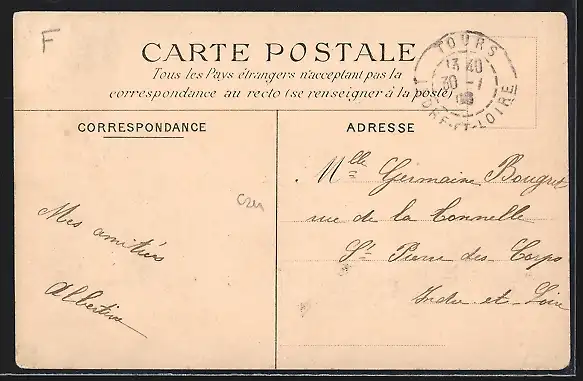 F
CARTE POSTALE
Tous les Pays étrangers n'acceptant pas la
correspondance au recto (se renseigner à la poste)
TOURS
13 40
30 - 1
08
INDRE-ET-LOIRE
CORRESPONDANCE
ADRESSE
Mes amitiés
Albertine
Mlle Germaine Bougret
rue de la Tonnelle
St Pierre des Corps
Indre-et-Loire